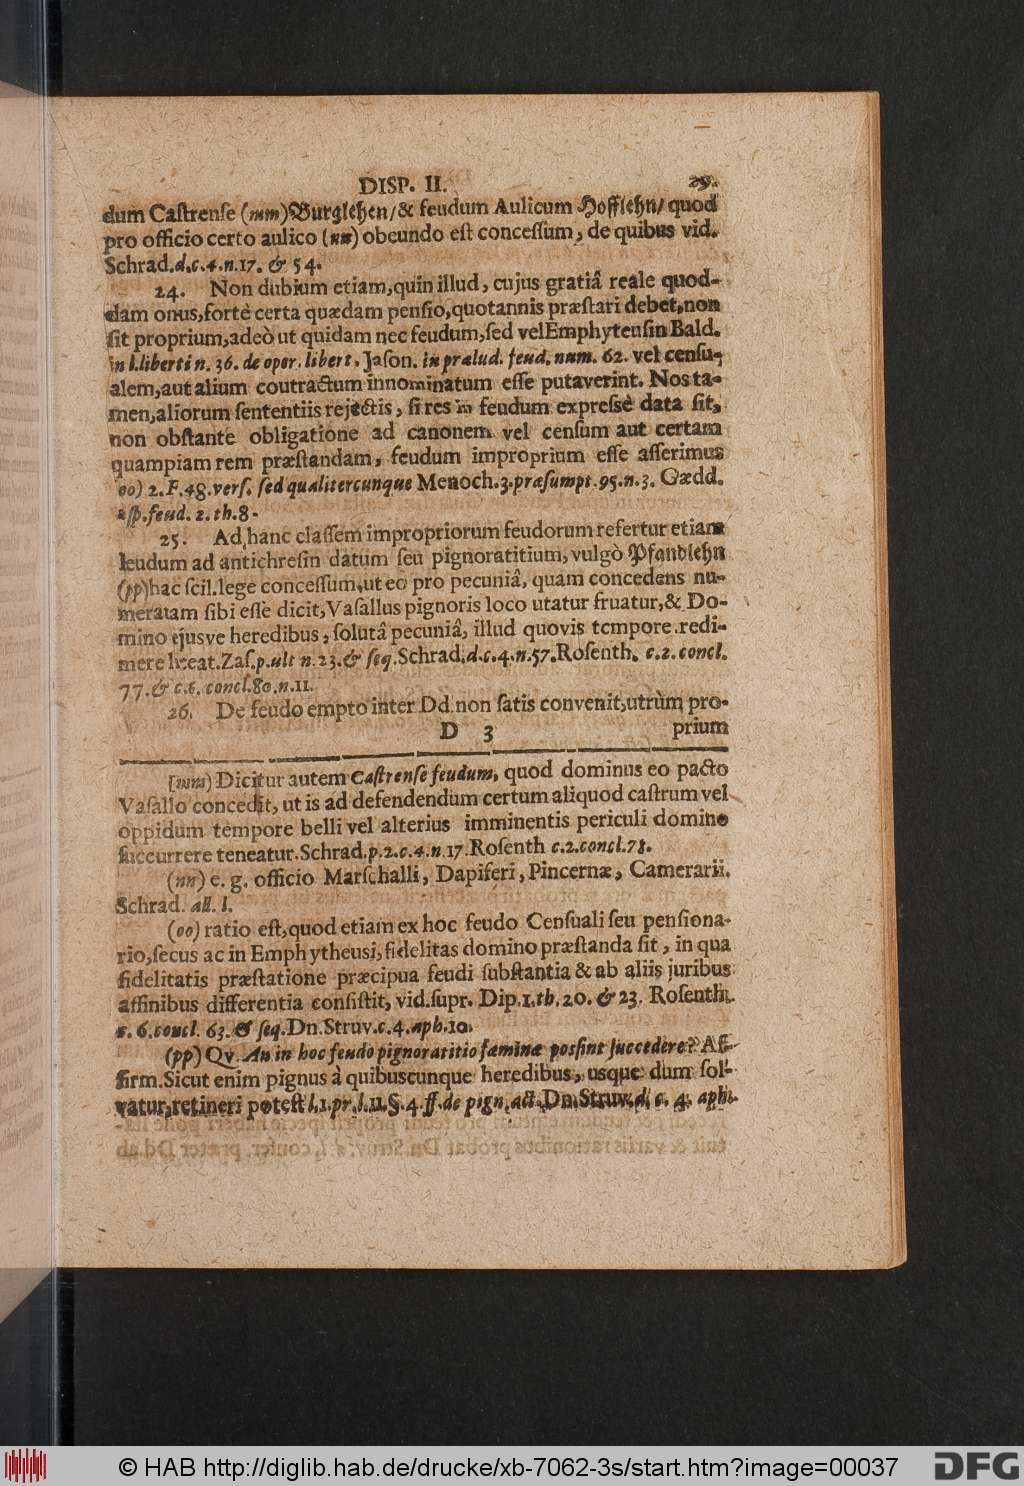 DISP. II. 29.
dum Caſtrenſe (mm) Burglehen/ & feudum Aulicum Hofflehn/ quod
pro officio certo aulico (nn) obeundo eſt conceſſum, de quibus vid.
Schrad. d. c. 4. n. 17. & 54.
24. Non dubium etiam, quin illud, cujus gratiâ reale quod-
dam onus, fortè certa quædam penſio, quotannis præſtari debet, non
ſit proprium, adeò ut quidam nec feudum, ſed vel Emphyteuſin Bald.
in l. liberti n. 36. de oper. libert. Jaſon. in prælud. feud. num. 62. vel cenſu-
alem, aut alium coutractum innominatum eſſe putaverint. Nos ta-
men, aliorum ſententiis rejectis, ſi res in feudum expreſsè data ſit,
non obſtante obligatione ad canonem vel cenſum aut certam
quampiam rem præſtandam, feudum improprium eſſe aſſerimus
oo) 2. F. 48. verſ. ſed qualitercunque Menoch. 3. præſumpt. 95. n. 3. Gædd.
diſp. feud. 2. th. 8.
25. Ad hanc claſſem impropriorum feudorum refertur etiam
feudum ad antichreſin datum ſeu pignoratitium, vulgò Pfandlehn
(pp) hac ſcil. lege conceſſum, ut eo pro pecuniâ, quam concedens nu-
meratam ſibi eſſe dicit, Vaſallus pignoris loco utatur fruatur, & Do-
mino ejusve heredibus, ſolutâ pecuniâ, illud quovis tempore redi-
mere liceat. Zaſ. p. ult n. 23. & ſeq. Schrad. d. c. 4. n. 57. Roſenth. c. 2. concl.
77. & c. 6. concl. 80. n. 11.
26. De feudo empto inter Dd. non ſatis convenit, utrùm pro-
D 3 prium
(mm) Dicitur autem Caſtrenſe feudum, quod dominus eo pacto
Vaſallo concedit, ut is ad defendendum certum aliquod caſtrum vel
oppidum tempore belli vel alterius imminentis periculi domino
ſuccurrere teneatur. Schrad. p. 2. c. 4. n. 17. Roſenth c. 2. concl. 78.
(nn) e. g. officio Marſchalli, Dapiferi, Pincernæ, Camerarii.
Schrad. all. l.
(oo) ratio eſt, quod etiam ex hoc feudo Cenſuali ſeu penſiona-
rio, ſecus ac in Emphytheuſi, fidelitas domino præſtanda ſit, in qua
fidelitatis præſtatione præcipua feudi ſubſtantia & ab aliis juribus
affinibus differentia conſiſtit, vid. ſupr. Diſp. 1. th. 20. & 23. Roſenth.
c. 6. concl. 63. & ſeq. Dn. Struv. c. 4. aph. 10.
(pp) Qv. An in hoc feudo pignoratitio fæminæ posſint ſuccedere? Af-
firm. Sicut enim pignus à quibuscunque heredibus, usque dum ſol-
vatur, retineri poteſt l. 1. pr. l. 11. §. 4. ff. de pign. act. Dn. Struv. d. c. 4. aph.
© HAB http://diglib.hab.de/drucke/xb-7062-3s/start.htm?image=00037
DFG